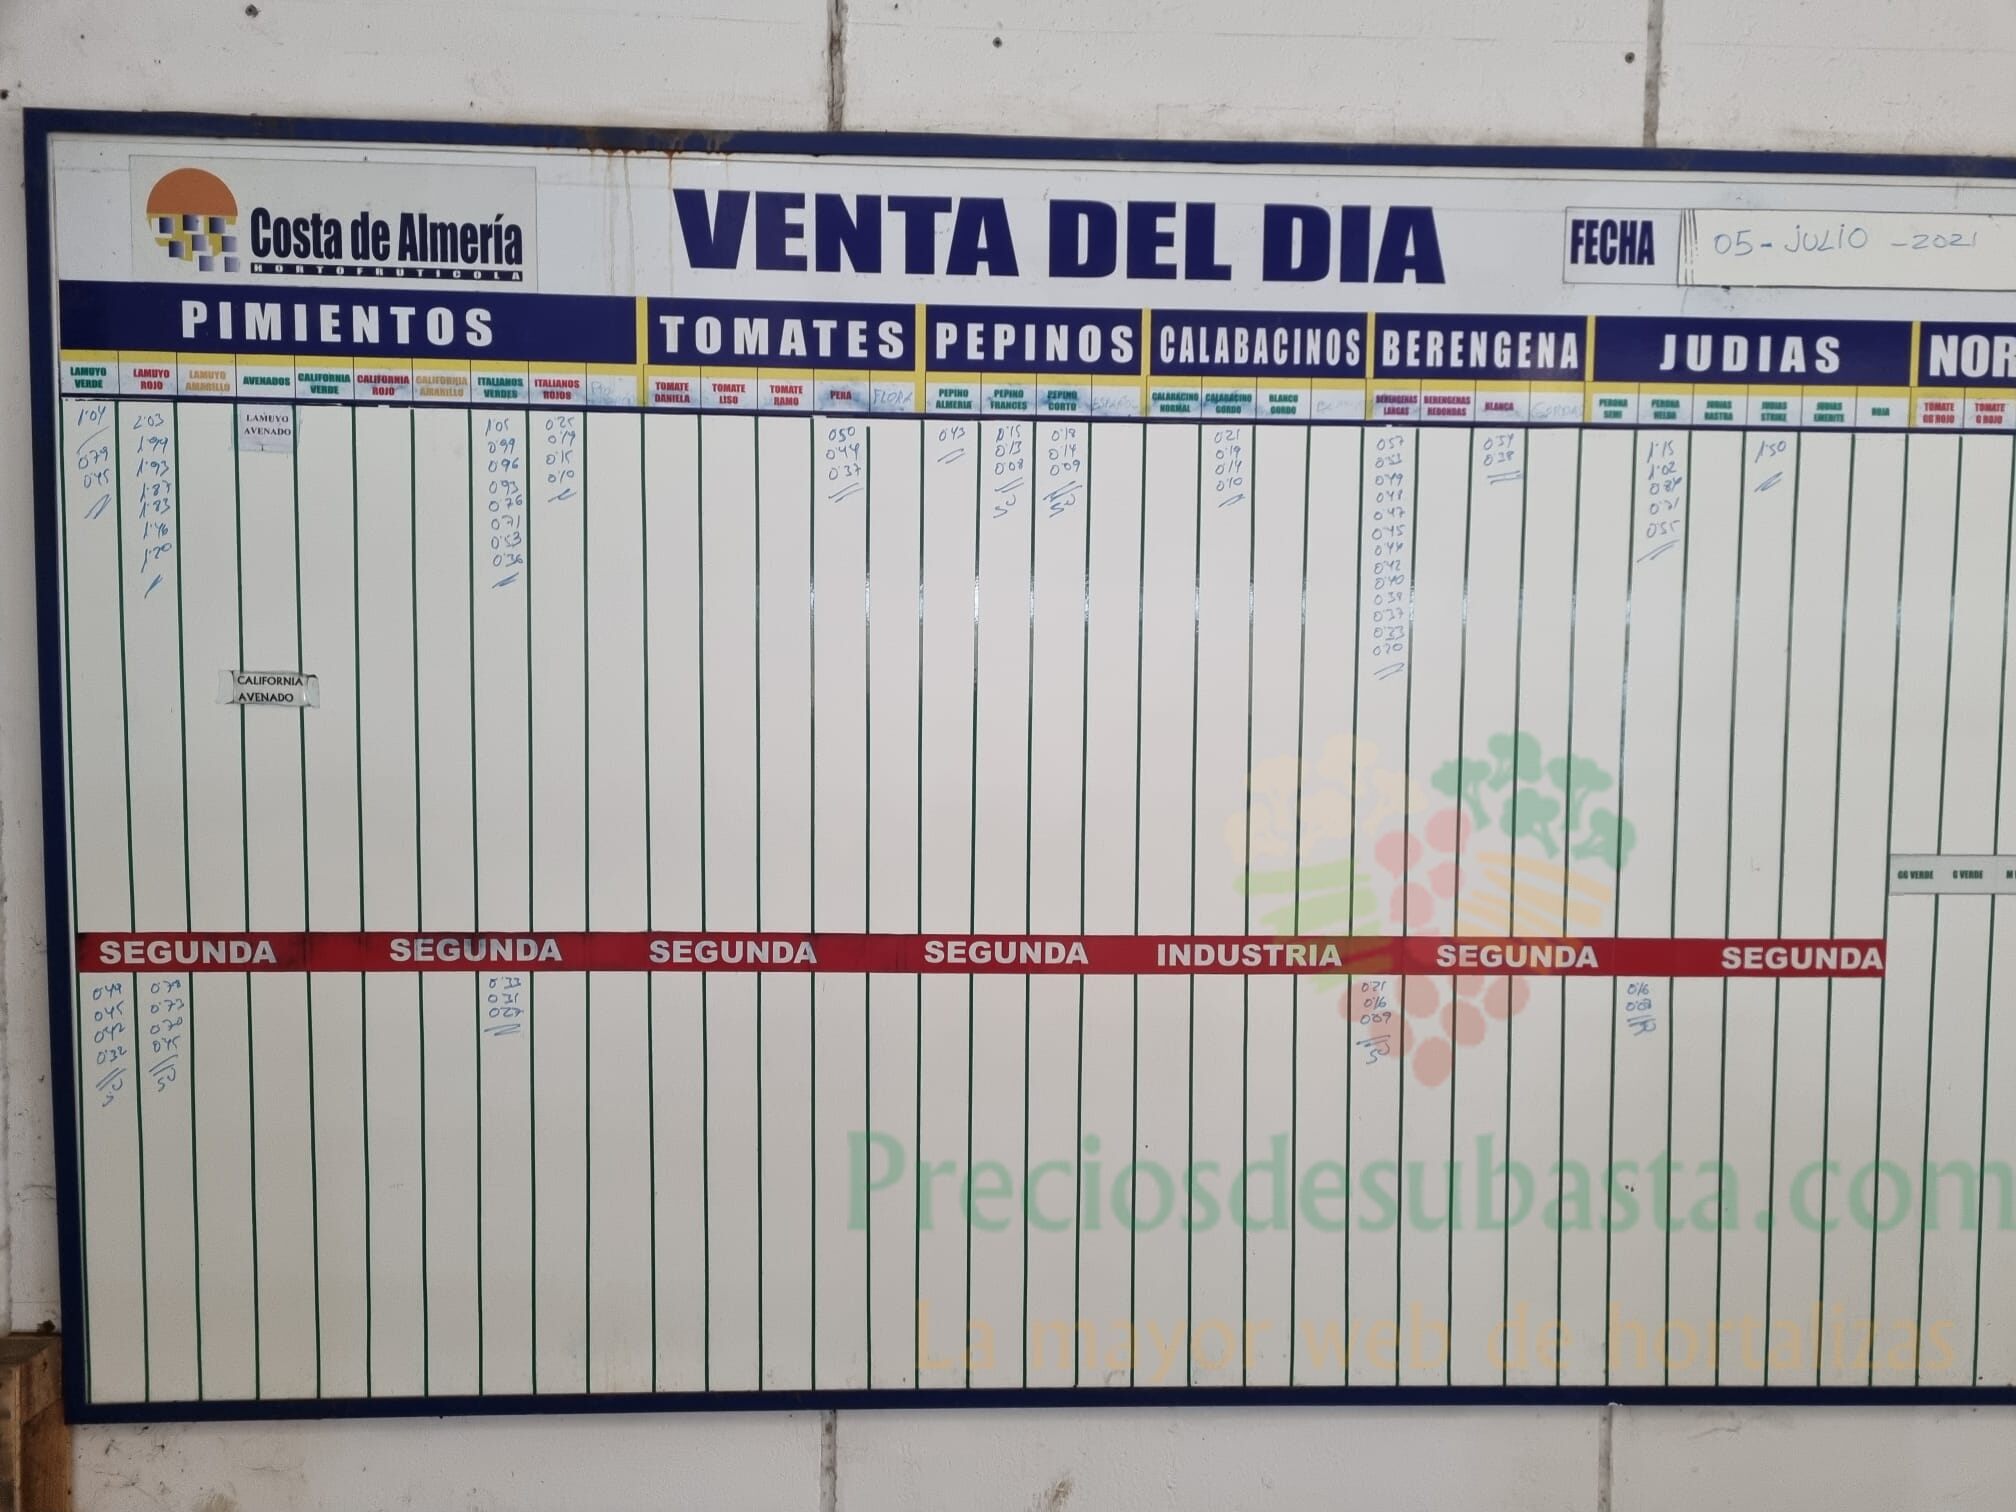 Costa de Almería
HORTOFRUTICOLA
VENTA DEL DIA
FECHA
05-JULIO-2021
PIMIENTOS
TOMATES
PEPINOS
CALABACINOS
BERENGENA
JUDIAS
NOR
LAMUYO VERDE
LAMUYO ROJO
LAMUYO AMARILLO
AVENADOS
CALIFORNIA VERDE
CALIFORNIA ROJO
CALIFORNIA AMARILLO
ITALIANOS VERDES
ITALIANOS ROJOS
TOMATE DANIELA
TOMATE LISO
TOMATE RAMO
PERA
FLORA
PEPINO ALMERIA
PEPINO FRANCES
PEPINO CORTO
ESPAÑOL
CALABACINO NORMAL
CALABACINO GORDO
BLANCO GORDO
BERENGENAS LARGAS
BERENGENAS REDONDAS
BLANCA
GORDAS
PERONA SEMI
PERONA HELDA
JUDIAS RASTRA
JUDIAS STRIKE
JUDIAS EMERITE
ROJA
TOMATE GG ROJO
TOMATE G ROJO
1'04
0'79
0'45
2'03
1'94
1'93
1'87
1'83
1'46
1'20
LAMUYO
AVENADO
CALIFORNIA
AVENADO
1'05
0'99
0'96
0'93
0'76
0'71
0'53
0'36
0'25
0'19
0'15
0'10
0'50
0'44
0'37
0'43
0'15
0'13
0'08
SU
0'18
0'14
0'09
SU
0'21
0'19
0'14
0'10
0'57
0'53
0'49
0'48
0'47
0'45
0'44
0'42
0'40
0'39
0'37
0'33
0'20
0'38
1'15
1'02
0'84
0'71
0'55
1'50
GG VERDE
G VERDE
M
SEGUNDA
SEGUNDA
SEGUNDA
SEGUNDA
INDUSTRIA
SEGUNDA
SEGUNDA
0'49
0'45
0'42
0'32
SU
0'78
0'73
0'70
0'45
SU
0'33
0'31
0'27
0'21
0'16
0'09
SU
0'16
Preciosdesubasta.com
La mayor web de hortalizas